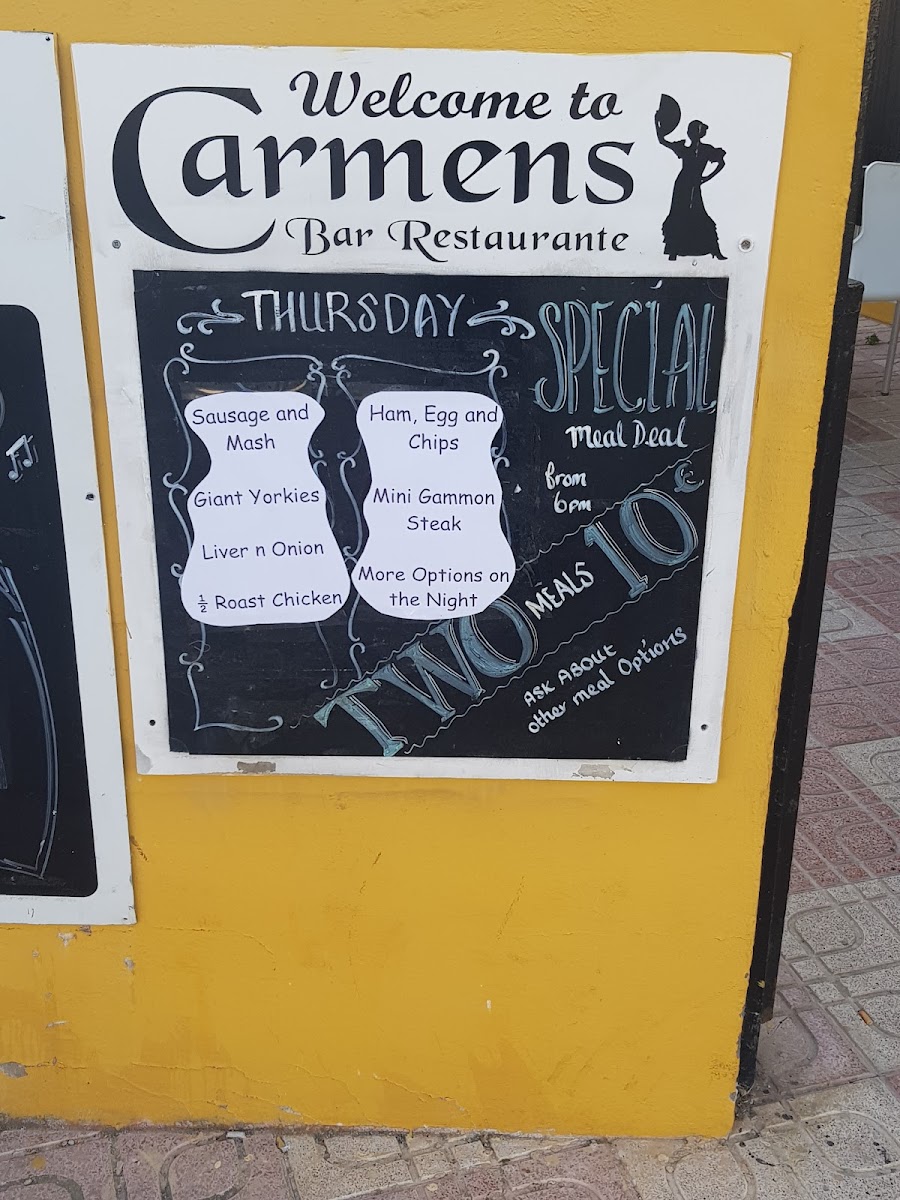 Welcome to
Carmens
Bar Restaurante
THURSDAY
Sausage and
Mash
Giant Yorkies
Liver n Onion
½ Roast Chicken
Ham, Egg and
Chips
Mini Gammon
Steak
More Options on
the Night
SPECIAL
Meal Deal
from
6pm
TWO MEALS 10€
ASK ABOUT
other meal Options